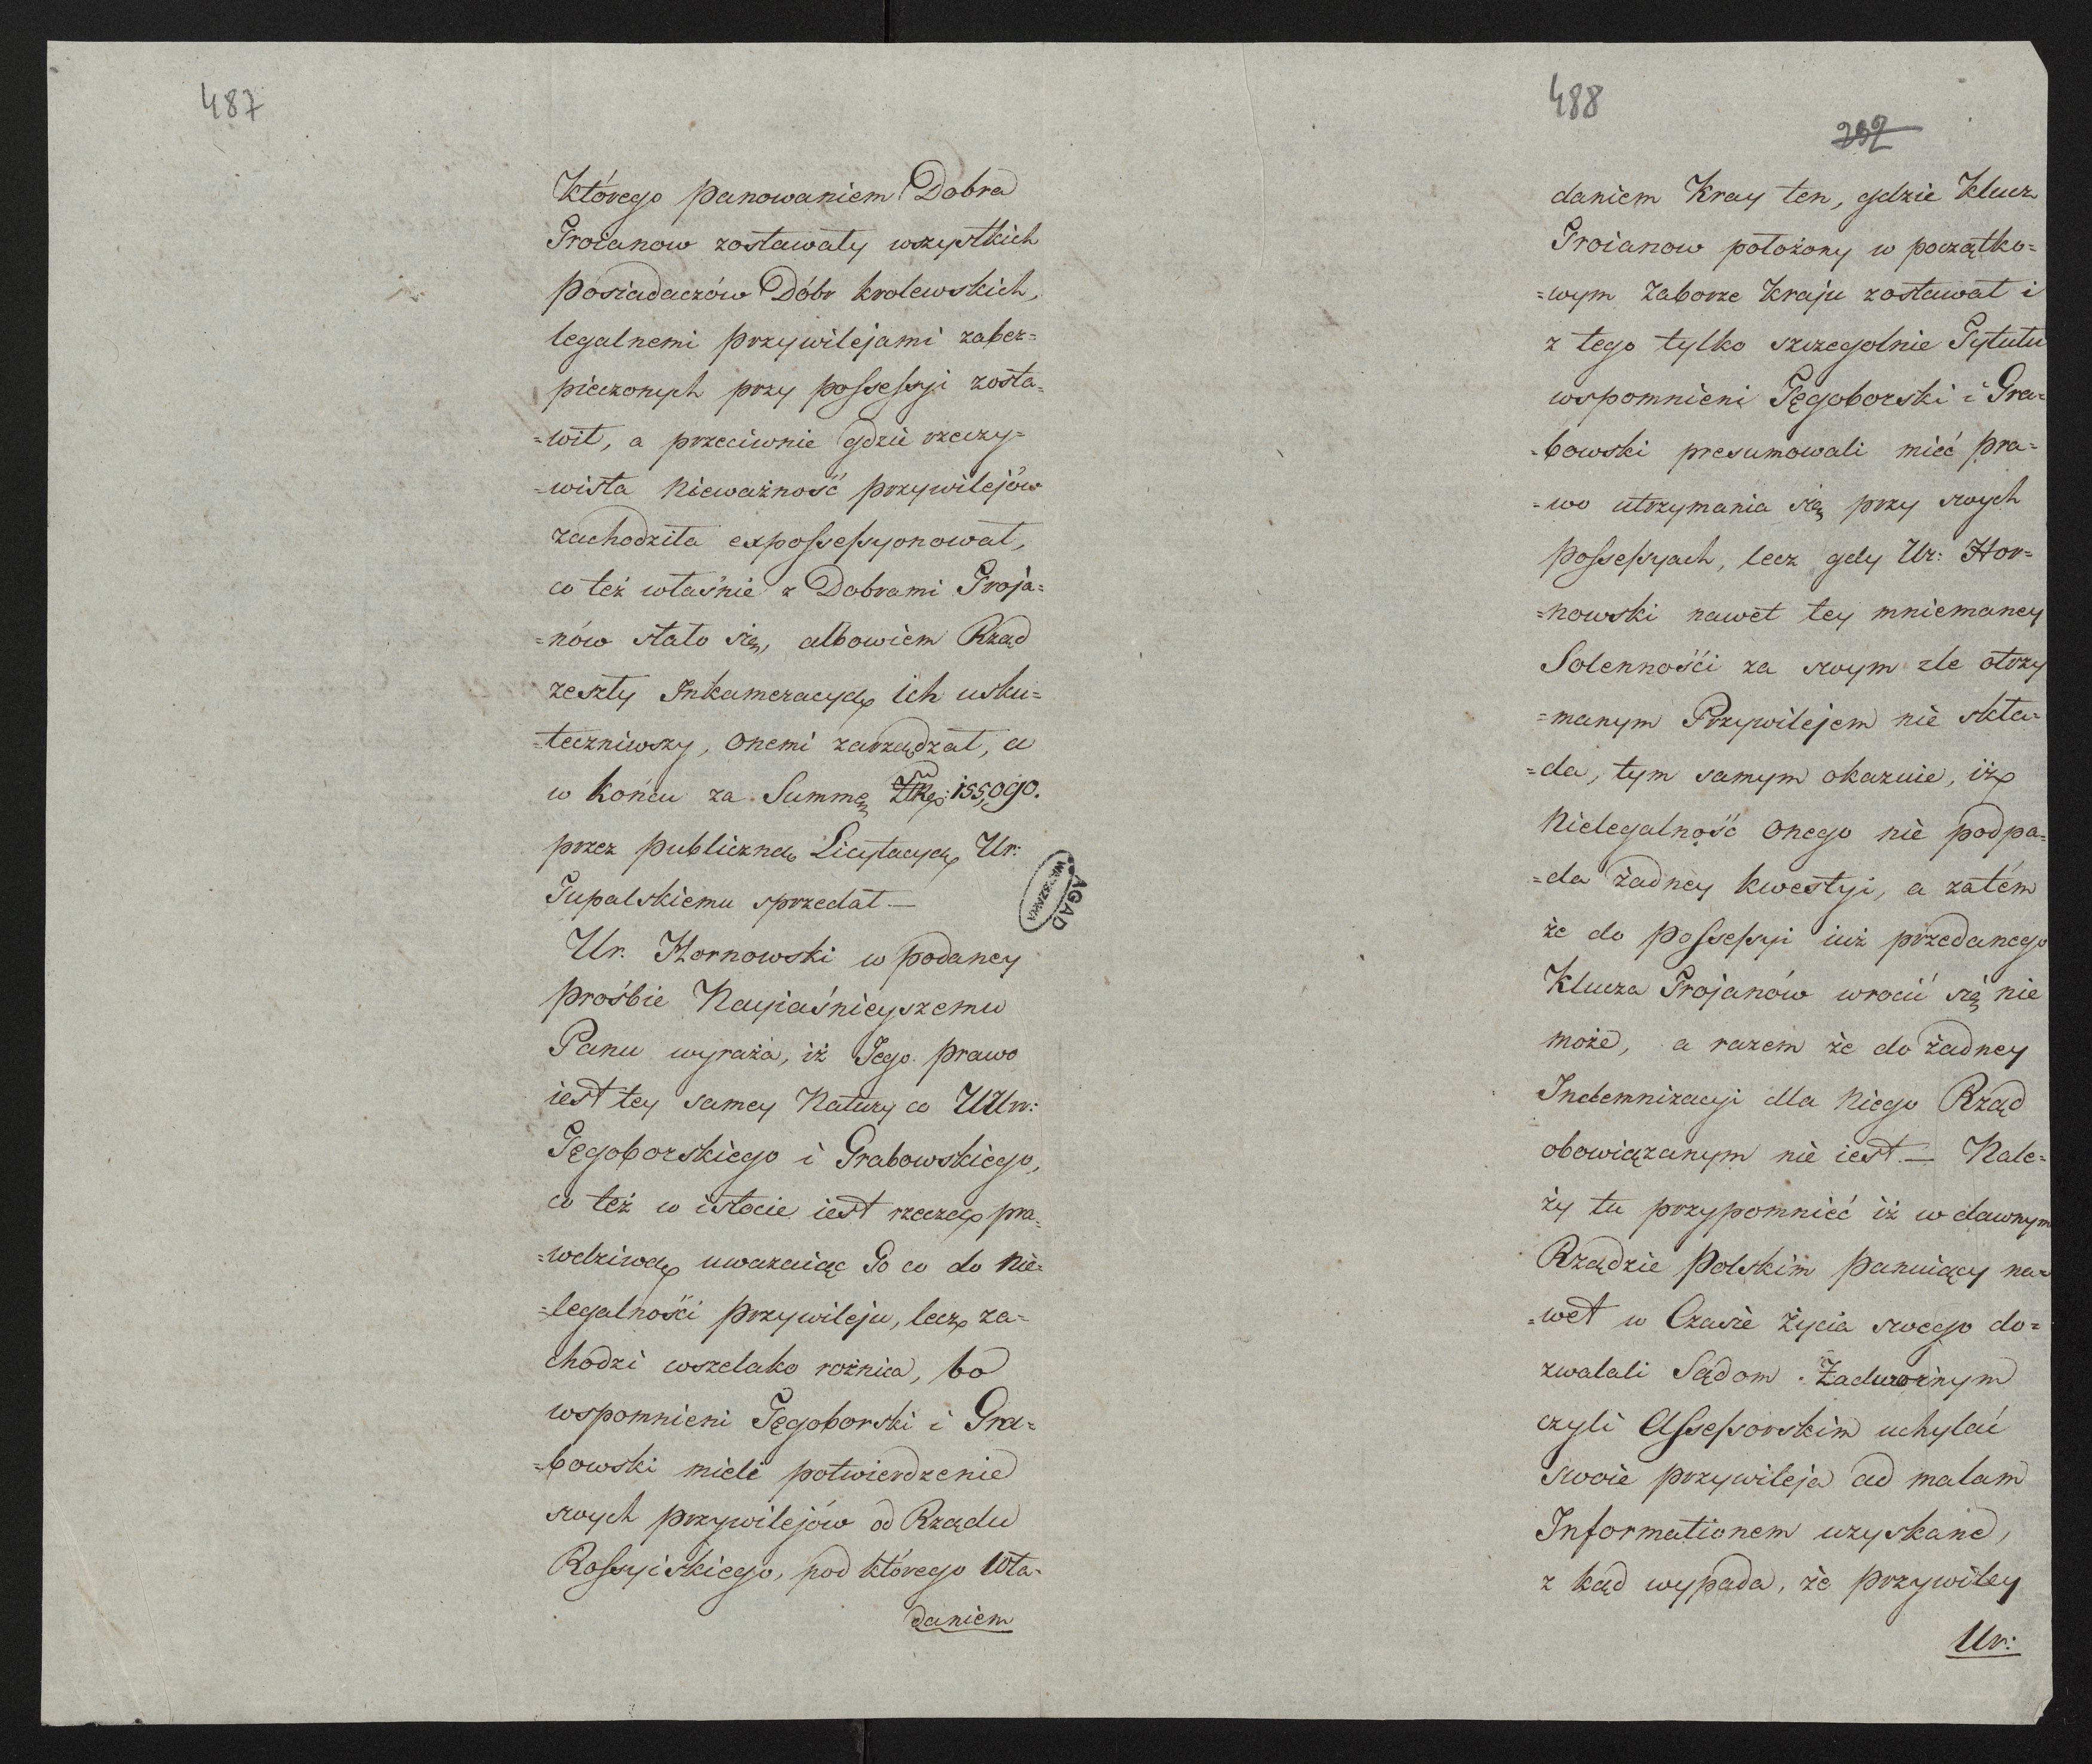 487
którego panowaniem Dobra
Troianow zostawały wszystkich
posiadaczów Dóbr krolewskich,
legalnemi przywilejami zabez=
pieczonych przy possessyi zosta=
=wił, a przeciwnie gdzie rzeczy=
=wista nieważność przywilejów
zachodziła expossessyonował,
co też właśnie z Dobrami Troja=
=nów stało się, albowiem Rząd
zeszły Inkameracyą ich usku=
=teczniwszy, onemi zarządzał, a
w końcu za Summę 155,090.
przez publiczną Licytacyą Ur:
Tupalskiemu sprzedał —
Ur. Hornowski w podaney
prośbie Nayiaśnieyszemu
Panu wyraża, iż Jego prawo
iest tey samey Natury co UUr:
Tęgoborskiego i Grabowskiego,
co też w istocie iest rzeczą pra=
=wdziwą uważaiąc Go co do nie=
=legalności przywileju, lecz za=
chodzi wszelako rożnica, bo
wspomnieni Tęgoborski i Gra=
=bowski mieli potwierdzenie
swych przywilejów od Rządu
Rossyiskiego, pod którego wła=
daniem
AGAD
WARSZAWA
488
daniem Kray ten, gdzie Klucz
Troianow położony w początko=
=wym Zaborze Kraju zostawał i
z tego tylko szczegolnie Tytułu
wspomnieni Tęgoborski i Gra=
=bowski presumowali mieć pra=
=wo utrzymania się przy swych
possessyach, lecz gdy Ur: Hor=
=nowski nawet tey mniemaney
Solenności za swym źle otrzy
=manym Przywilejem nie skła=
=da, tym samym okazuie, iż
nielegalność onego nie podpa=
=da żadney kwestyi, a zatém
że do possessyi iuż przedanego
Klucza Trojanów wrocić się nie
może, a razem że do żadney
Indemnizacyi dla niego Rząd
obowiązanym nie iest — Nale=
ży tu przypomnieć iż w dawnym
Rządzie Polskim Panuiący na=
=wet w Czasie życia swego do=
zwalali Sądom Zadwornym
czyli Assessorskim uchylać
swoie przywileja ad malam
Informationem uzyskane,
z kąd wypada, że przywiley
Ur: